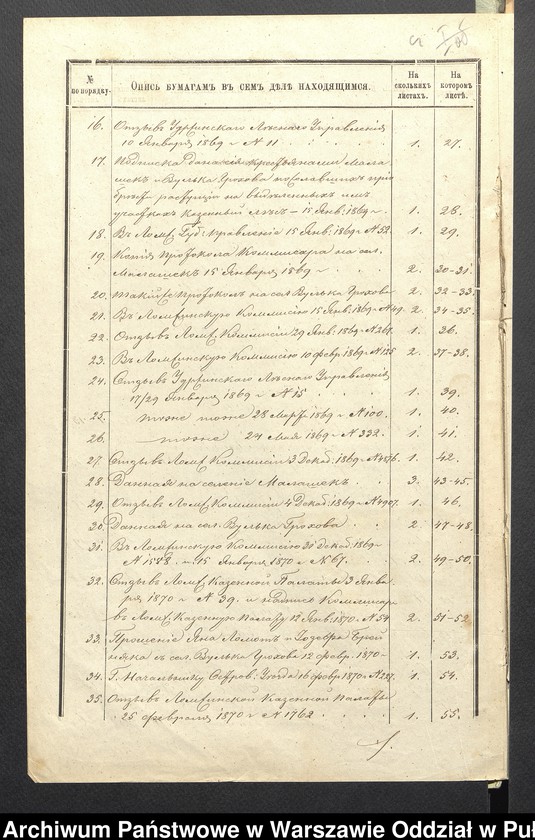 № по порядку.
Опись бумагамъ въ семъ дѣлѣ находящимся.
На сколькихъ листахъ.
На которомъ листѣ.
16. Отзывъ Удржинскаго Лѣснаго Управленія
10 Января 1869 г. N 11 1. 27.
17. Подписка данная крестьянами Мала-
шекъ и Вулька Грохова
на выделенныхъ имъ
участкахъ казенный лѣсъ – 15 Янв: 1869 г. 1. 28.
18. Въ Лом. Губ. правленіе 15 Янв. 1869 г. N 32 1. 29.
19. Копія протокола Коммисара на сел.
Малашекъ 15 Января 1869 г. 2. 30-31.
20. такой же протоколъ на сел Вулька Грохова 2. 32-33.
21. Въ Ломжинскую Коммисію 15 Янв. 1869 г. N 49. 2. 34-35.
22. Отзывъ Ломж. Коммисіи 29 Янв. 1869 г. N 267. 1. 36.
23. Въ Ломжинскую Коммисію 10 февр. 1869 г. N 125 2. 37-38.
24. Отзывъ Удржинскаго Лѣснаго Управленія
17/29 Января 1869 г. N 15 1. 39.
25. тоже тоже 28 Марта 1869 г. N 100. 1. 40.
26. тоже 24 Мая 1869 г. N 332. 1. 41.
27. Отзывъ Ломж. Коммисіи 3 Декаб. 1869 г. N 4876. 1. 42.
28. Данная на селеніе Малашекъ 3. 43-45.
29. Отзывъ Ломж. Коммисіи 4 Декаб. 1869 г. N 4907. 1. 46.
30. Данная на сел. Вулька Грохова 2. 47-48.
31. Въ Ломжинскую Коммисію 31 Декаб. 1869 г.
15 Января 1870 г. N 67. 2. 49-50.
32. Отзывъ Ломж. Казенной Палаты 3 Янва-
ря 1870 г. N 39. и надпись Коммисара
въ Ломж. Казенную Палату 12 Янв: 1870. N 54 2. 51-52
33. Прошеніе Яна и
съ сел. Вулька Грохова 12 февр. 1870 1. 53.
34. Г. Начальнику Остров: Уезда 16 февр 1870 г. N 227. 1. 54.
35. Отзывъ Ломжинской Казенной Палаты
25 февраля 1870 г. N 1762 1. 55.
Archiwum Państwowe w Warszawie Oddział w Puł